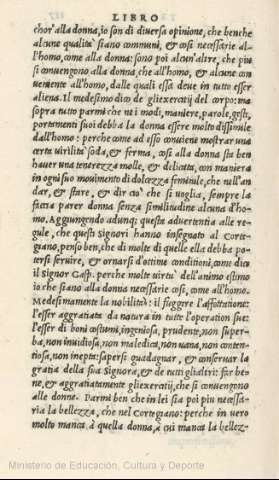 LIBRO
chor'alla donna, io son di diversa opinione, che benche
alcune qualita siano communi, & cosi necessarie al-
l'homo, come alla donna: sono poi alcun'altre, che piu
si convengono alla donna, che all'homo, & alcune con
venienti all'homo, dalle quali essa deve in tutto esser
aliena. Il medesimo dico de gliexercitij del corpo: ma
sopra tutto parmi che ne i modi, maniere, parole, gesti,
portamenti suoi debba la donna essere molto dissimile
dall'homo: perche come ad esso conviene mostrar una
certa virilità soda, & ferma, cosi alla donna sta ben
haver una tenerezza molle, & delicata, con maniera
in ogni suo movimento di dolcezza feminile, che nell'an
dar, & stare, & dir ciò che si voglia, sempre la
faccia parer donna senza similitudine alcuna d'ho-
mo. Aggiungendo adunq; questa advertentia alle re-
gule, che questi Signori hanno insegnato al Corte-
giano, penso ben, che di molte di quelle ella debba po-
tersi servire, & ornarsi d'ottime conditioni, come dice
il Signor Gasp. perche molte virtu dell'animo estimo
io che siano alla donna necessarie cosi, come all'homo.
Medesimamente la nobiltà: il fuggire l'affettatione:
l'esser aggratiata da natura in tutte l'operation sue:
l'esser di boni costumi, ingeniosa, prudente, non super-
ba, non invidiosa, non maledica, non vana, non conten-
tiosa, non inepta: sapersi guadagnar, & conservar la
gratia della sua Signora, & de tutti glialtri: far be-
ne, & aggratiatamente gliexercitij, che si convengono
alle donne. Parmi ben che in lei sia poi piu necessa-
ria la bellezza, che nel Cortegiano: perche in vero
molto manca, à quella donna, à cui manca la bellez-
Ministerio de Educación, Cultura y Deporte